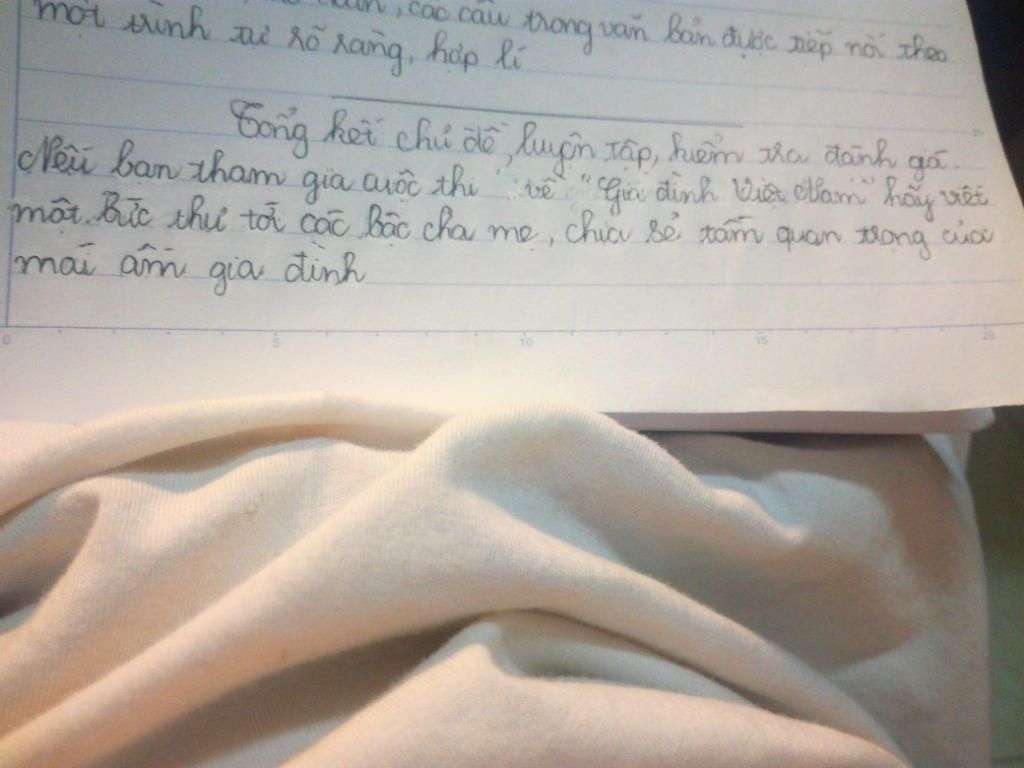 đoạn, các câu trong văn bản được tiếp nối theo
một trình tự rõ ràng, hợp lí
Tổng kết chủ đề, luyện tập, kiểm tra đánh giá.
Nếu bạn tham gia cuộc thi viết về "Gia đình Việt Nam" hãy viết
một bức thư tới các bậc cha mẹ, chia sẻ tầm quan trọng của
mái ấm gia đình
0 5 10 15 20